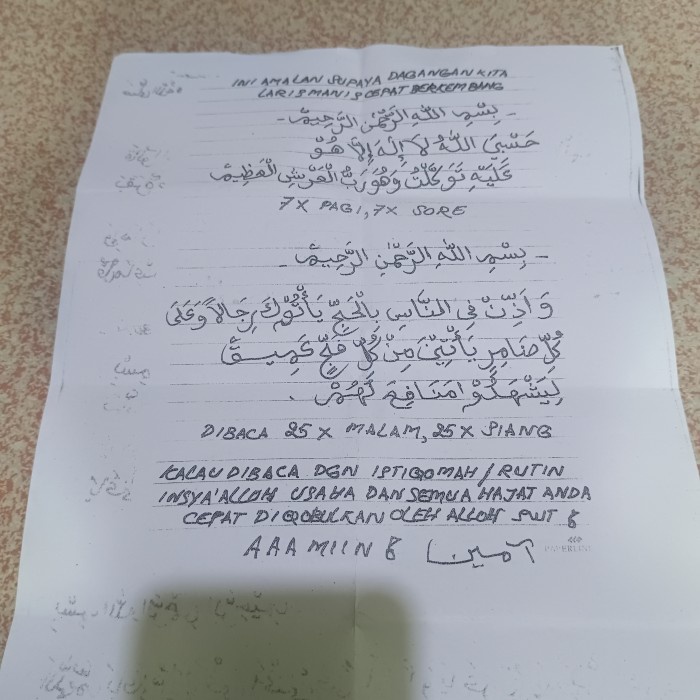 INI AMALAN SUPAYA DAGANGAN KITA
LARIS MANIS CEPAT BERKEMBANG
- بِسْمِ اللهِ الرَّحْمٰنِ الرَّحِيْمِ -
حَسْبِيَ اللهُ لَا إِلٰهَ إِلَّا هُوَ
عَلَيْهِ تَوَكَّلْتُ وَهُوَ رَبُّ الْعَرْشِ الْعَظِيْمِ
7X PAGI, 7X SORE
- بِسْمِ اللهِ الرَّحْمٰنِ الرَّحِيْمِ -
وَ اَذِّنْ فِى النَّاسِ بِالْحَجِّ يَأْتُوْكَ رِجَالًا وَعَلَى
كُلِّ ضَامِرٍ يَأْتِيْنَ مِنْ كُلِّ فَجٍّ عَمِيْقٍ
لِيَشْهَدُوْا مَنَافِعَ لَهُمْ .
DIBACA 25 X MALAM, 25 X SIANG
KALAU DIBACA DGN ISTIQOMAH / RUTIN
INSYA'ALLOH USAHA DAN SEMUA HAJAT ANDA
CEPAT DIQOBULKAN OLEH ALLOH SWT
AAAMIIN آمين
PAPERLINE